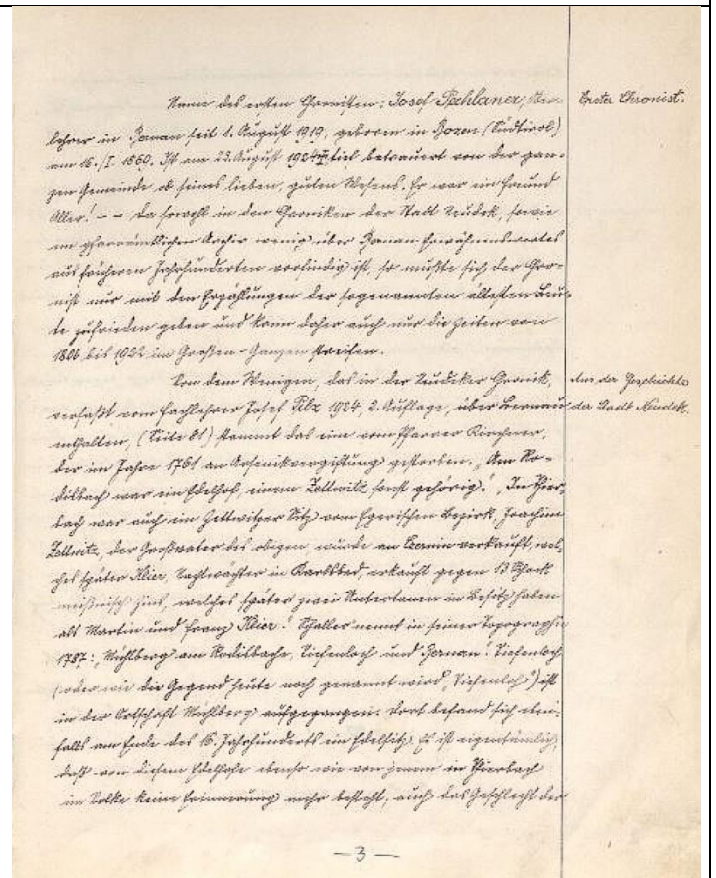 Name des ersten Chronisten: Josef Pechlaner, Ober- Erster Chronist.
lehrer in Bernau seit 1. August 1919, geboren in Bozen (Südtirol)
am 16./I. 1860. Ist am 22. August 1924 tief betrauert von der gan-
zen Gemeinde ob seines lieben, guten Wesens. Er war ein Freund
Aller! – – Da sowohl in den Chroniken der Stadt Neudek, sowie
im pfarramtlichen Archiv wenig über Bernau Erwähnenswertes
aus früheren Jahrhunderten vorfindig ist, so mußte sich der Chro-
nist nur mit den Erzählungen der sogenannten ältesten Leu-
te zufrieden geben und kann daher auch nur die Zeiten von
1806 bis 1922 im Großen-Ganzen streifen.
Von dem Wenigen, das in der Neudeker Chronik, Aus der Geschichte
verfaßt vom Fachlehrer Josef Pilz 1924, 2. Auflage, über Bernau der Stadt Neudek.
enthalten, (Seite 81) stammt das eine vom Pfarrer Kirchner,
der im Jahre 1761 an Arsenikvergiftung gestorben. „Am Ro-
dilbach war ein Edelhof, einem Zettwitz sonst gehörig." „In Thier-
bach war auch ein Zettwitzer Sitz vom Egerischen Bezirk, Joachim
Zettwitz, der Großvater des obigen, wurde an Czernin verkauft, wel-
ches später Klier, Nachtwächter in Karlsbad, erkauft gegen 13 Schock
meißnisch Zins, welches später zwei Untertanen in Besitz haben
als Martin und Franz Klier." Schaller nennt in seiner Topographie
1787: „Mühlberg am Rodilbache, Tiefenloch und Bernau." Tiefenloch
(oder wie die Gegend heute noch genannt wird „Tiefenloh") ist
in der Ortschaft Mühlberg aufgegangen. Dort befand sich eben-
falls am Ende des 16. Jahrhunderts ein Edelsitz. Es ist eigentümlich,
daß von diesem Edelhofe ebenso wie von jenem in Thierbach
im Volke keine Erinnerung mehr besteht; auch das Geschlecht der
– 3 –